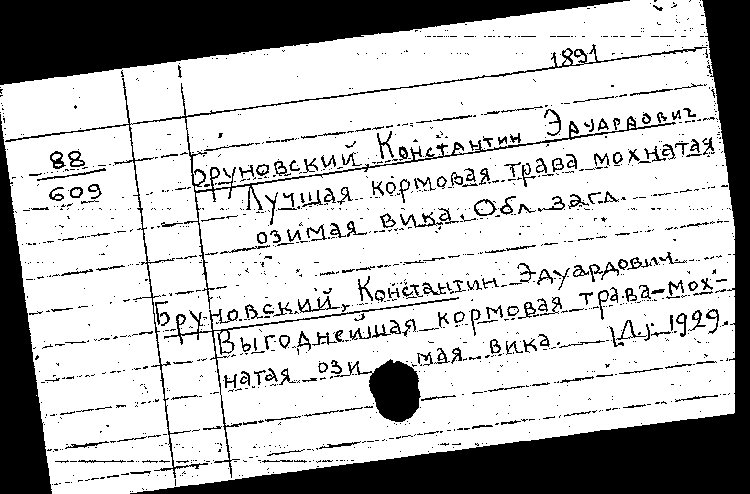 1891
88
609
Бруновский, Константин Эдуардович
Лучшая кормовая трава мохнатая
озимая вика. Обл. загл.
Бруновский, Константин Эдуардович.
Выгоднейшая кормовая трава-мох-
натая ози мая вика. 1929.